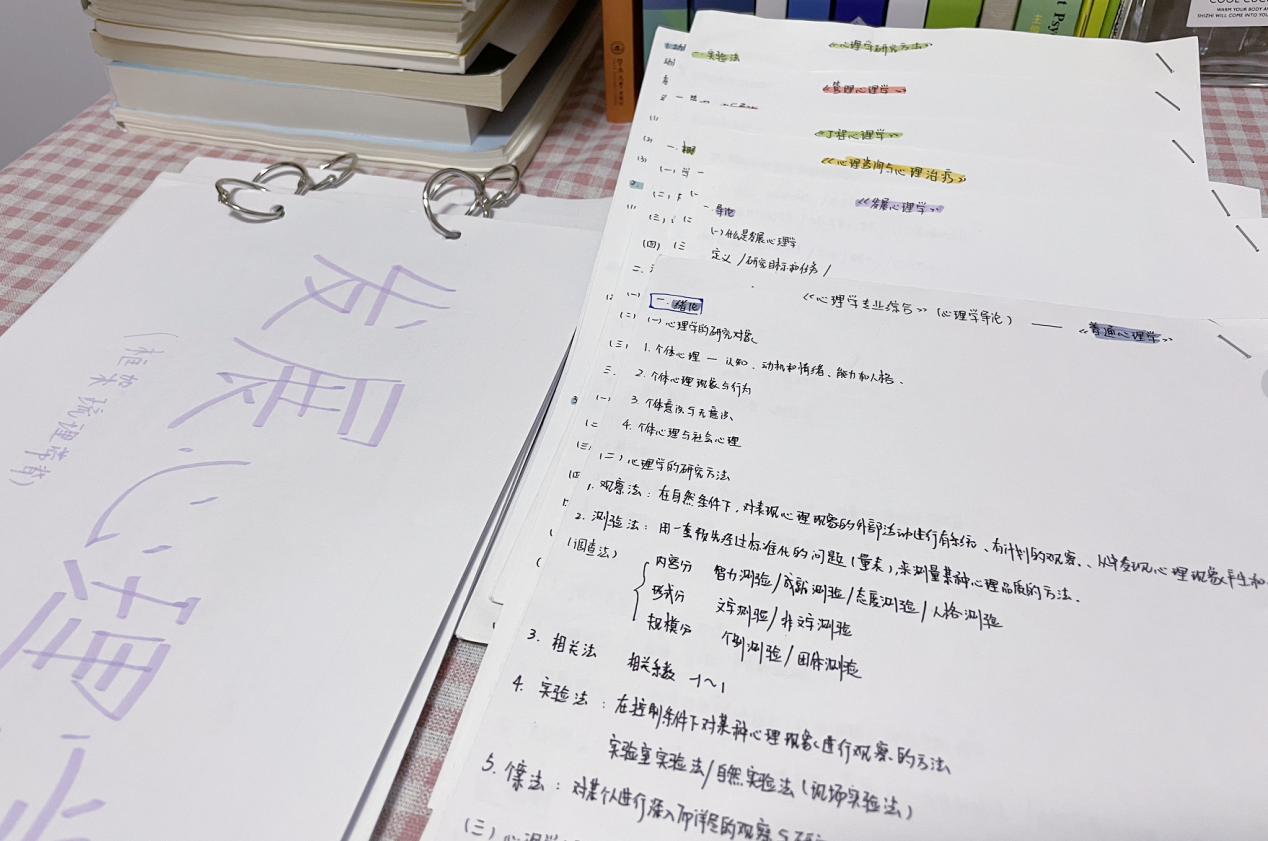 COOL
WARM YOUR BODY
SHIZHI WILL COME INTO YOU
发展心理学
(框架梳理等等)
《心理学研究方法》
一 实验法
《管理心理学》
《工程心理学》
《心理咨询与心理治疗》
《发展心理学》
一.导论
(一)什么是发展心理学
定义/研究目标和任务/
《心理学专业综合》(心理学导论) —— 《普通心理学》
一.绪论
(一)心理学的研究对象
1.个体心理 — 认知、动机和情绪、能力和人格.
2.个体心理现象与行为
3.个体意识与无意识
4.个体心理与社会心理
(二)心理学的研究方法
1.观察法:在自然条件下,对表现心理现象的外部活动进行有系统、有计划的观察、从中发现心理现象产生和
2.测验法:用一套预先经过标准化的问题(量表)来测量某种心理品质的方法.
(调查法)
内容分 智力测验/成就测验/态度测验/人格测验
形式分 文字测验/非文字测验
规模分 个别测验/团体测验
3.相关法 相关系数 -1~1
4.实验法:在控制条件下对某种心理现象进行观察的方法
实验室实验法/自然实验法(现场实验法)
5.个案法:对某个人进行深入而详尽的观察与研究
(三)心理学